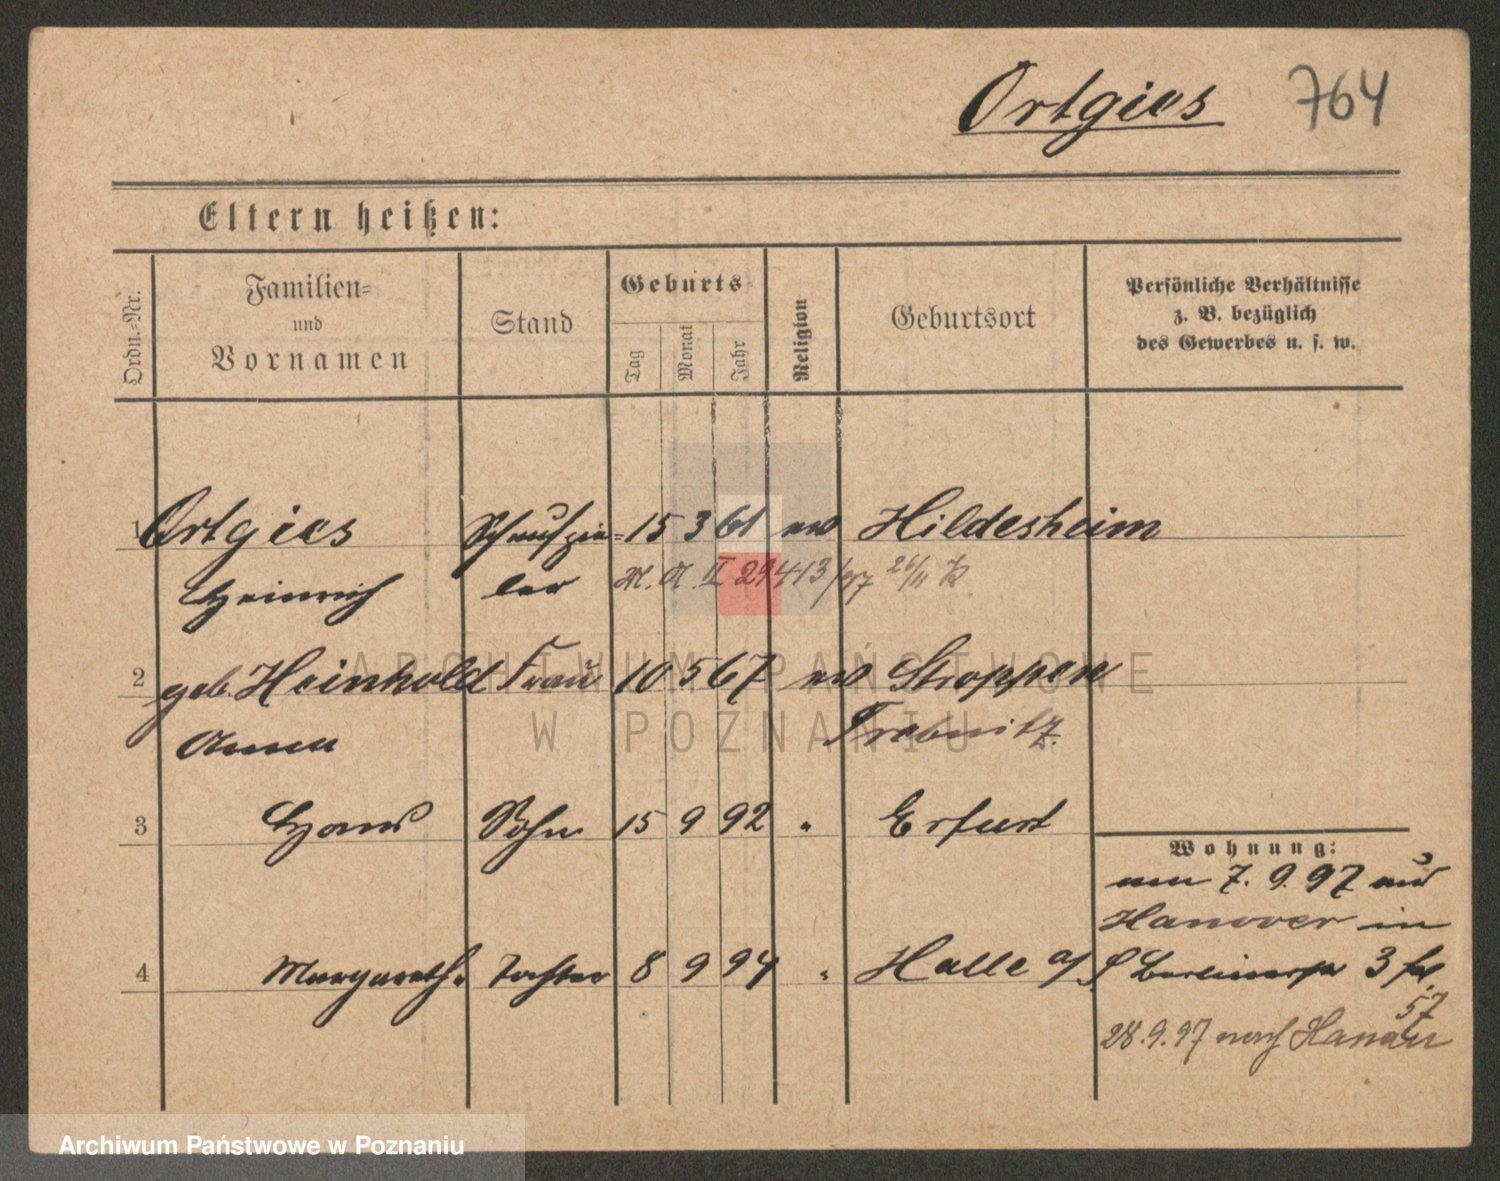 Ortgies 764
Eltern heißen:
Ordn.-Nr.
Familien-
und
Vornamen
Stand
Geburts-
Tag Monat Jahr
Religion
Geburtsort
Persönliche Verhältnisse
z. B. bezüglich
des Gewerbes u. s. w.
1 Ortgies Schauspie= 15 3 61 ev Hildesheim
Heinrich ler 26/11
2 geb. Heinhold Frau 10 5 67 ev Stroppen
Anna Trebnitz.
3 Hans Sohn 15 9 92 " Erfurt
4 Margarethe Tochter 8 9 94 " Halle a/S
Wohnung:
7. 9. 97 aus
Hanover in
Berlinerstr 3
57
28.9.97 nach Hanau
ARCHIWUM PAŃSTWOWE
W POZNANIU
Archiwum Państwowe w Poznaniu